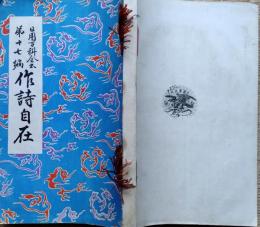 日用百科全書
第十七編
作詩自在